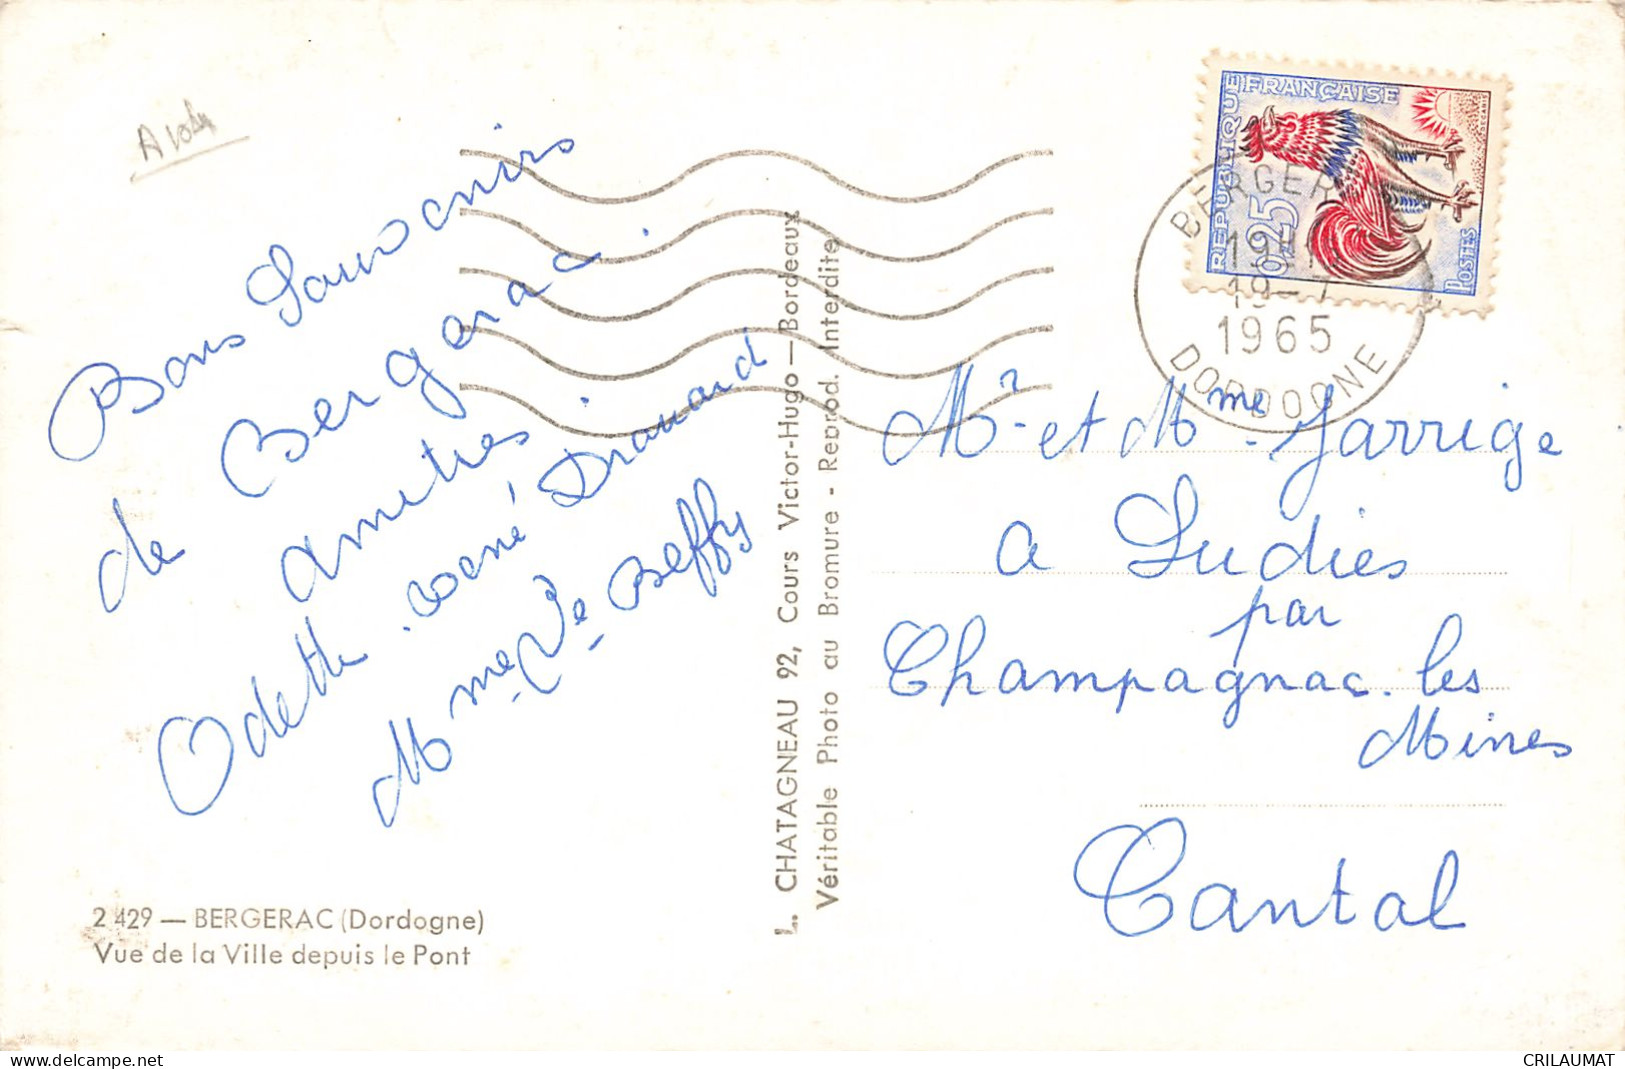 Bons Souvenirs
de Bergerac.
amitiés
Odette. René Drouard
Mme Ve Beffy
2.429 — BERGERAC (Dordogne)
Vue de la Ville depuis le Pont
L. CHATAGNEAU 92, Cours Victor-Hugo — Bordeaux
Véritable Photo au Bromure - Reprod. Interdite
REPUBLIQUE FRANÇAISE
0,25
POSTES
BERGER
19-7
1965
DORDOGNE
Mr et Mme Jarrige
a Ludiès
par
Champagnac. les
Mines
Cantal
www.delcampe.net
CRILAUMAT